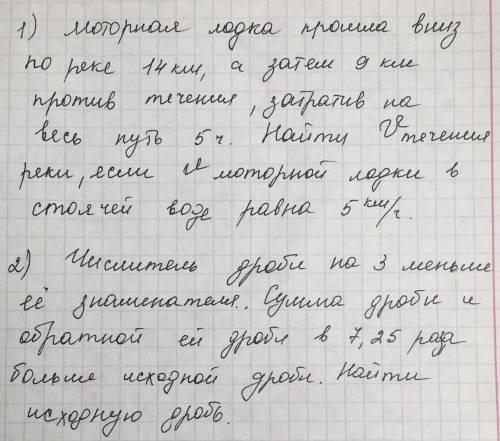 1) Моторная лодка прошла вниз
по реке 14 км, а затем 9 км
против течения, затратив на
весь путь 5 ч. Найти V течения
реки, если v моторной лодки в
стоячей воде равна 5 км/ч.
2) Числитель дроби на 3 меньше
её знаменателя. Сумма дроби и
обратной ей дроби в 7,25 раза
больше исходной дроби. Найти
исходную дробь.